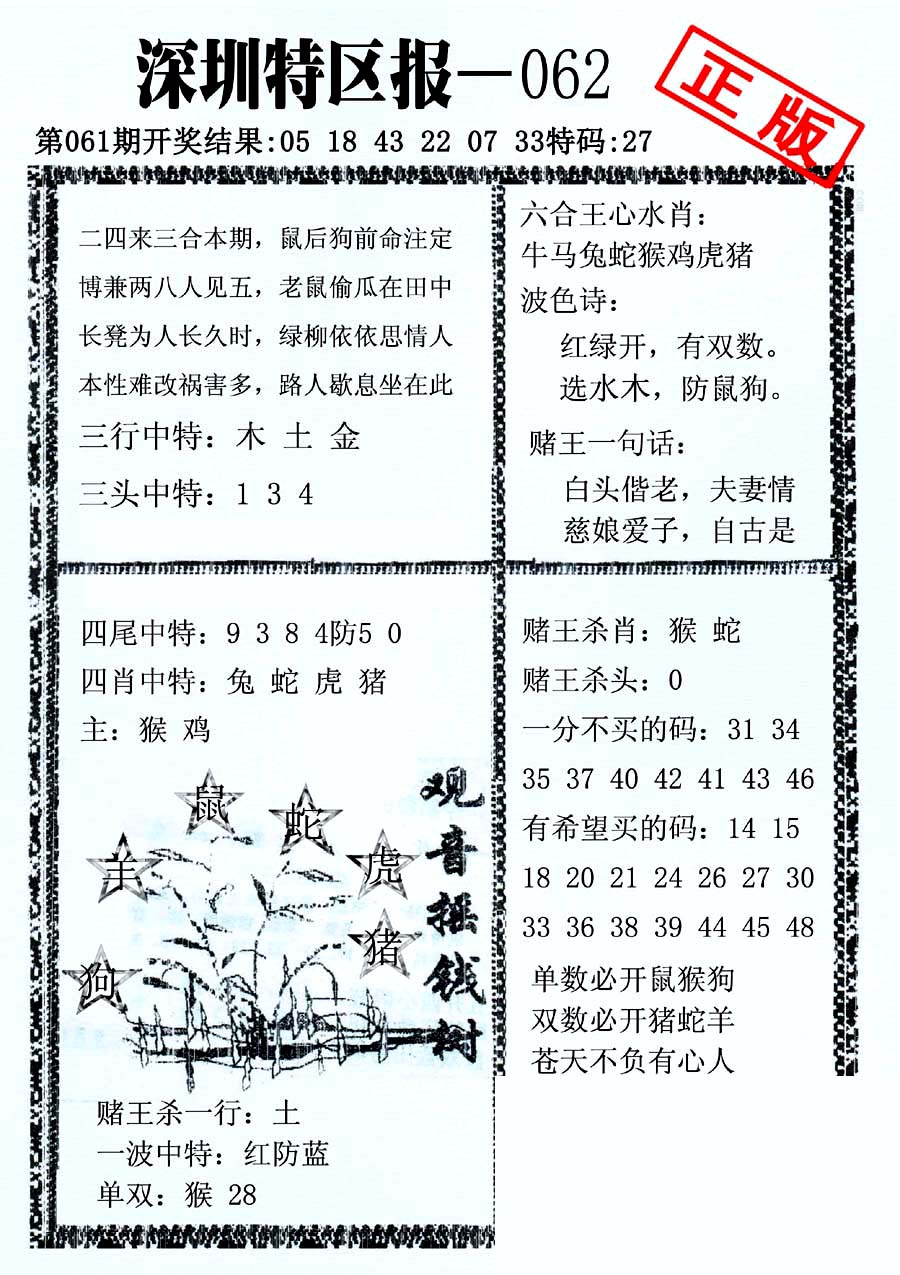 深圳特区报—062
正版
第061期开奖结果:05 18 43 22 07 33特码:27
二四来三合本期，鼠后狗前命注定
博兼两八人见五，老鼠偷瓜在田中
长凳为人长久时，绿柳依依思情人
本性难改祸害多，路人歇息坐在此
三行中特：木 土 金
三头中特：1 3 4
六合王心水肖：
牛马兔蛇猴鸡虎猪
波色诗：
红绿开，有双数。
选水木，防鼠狗。
赌王一句话：
白头偕老，夫妻情
慈娘爱子，自古是
四尾中特：9 3 8 4防5 0
四肖中特：兔 蛇 虎 猪
主：猴 鸡
鼠
蛇
羊
虎
猪
狗
观音摇钱树
赌王杀一行：土
一波中特：红防蓝
单双：猴 28
赌王杀肖：猴 蛇
赌王杀头：0
一分不买的码：31 34
35 37 40 42 41 43 46
有希望买的码：14 15
18 20 21 24 26 27 30
33 36 38 39 44 45 48
单数必开鼠猴狗
双数必开猪蛇羊
苍天不负有心人